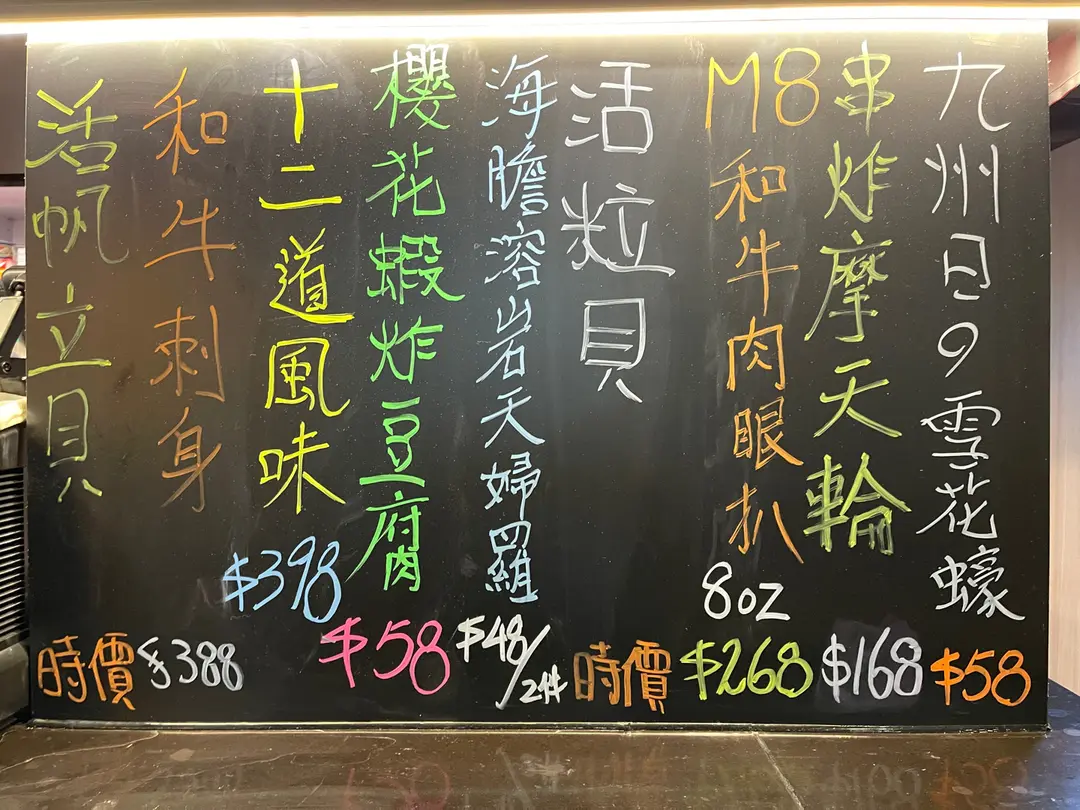 九州日の雪花蠔
$58
串炸摩天輪
$168
M8和牛肉眼扒
8oz
$268
活粒貝
時價
海膽溶岩天婦羅
$48/2件
櫻花蝦炸豆腐
$58
十二道風味
$398
和牛刺身
$388
活帆立貝
時價